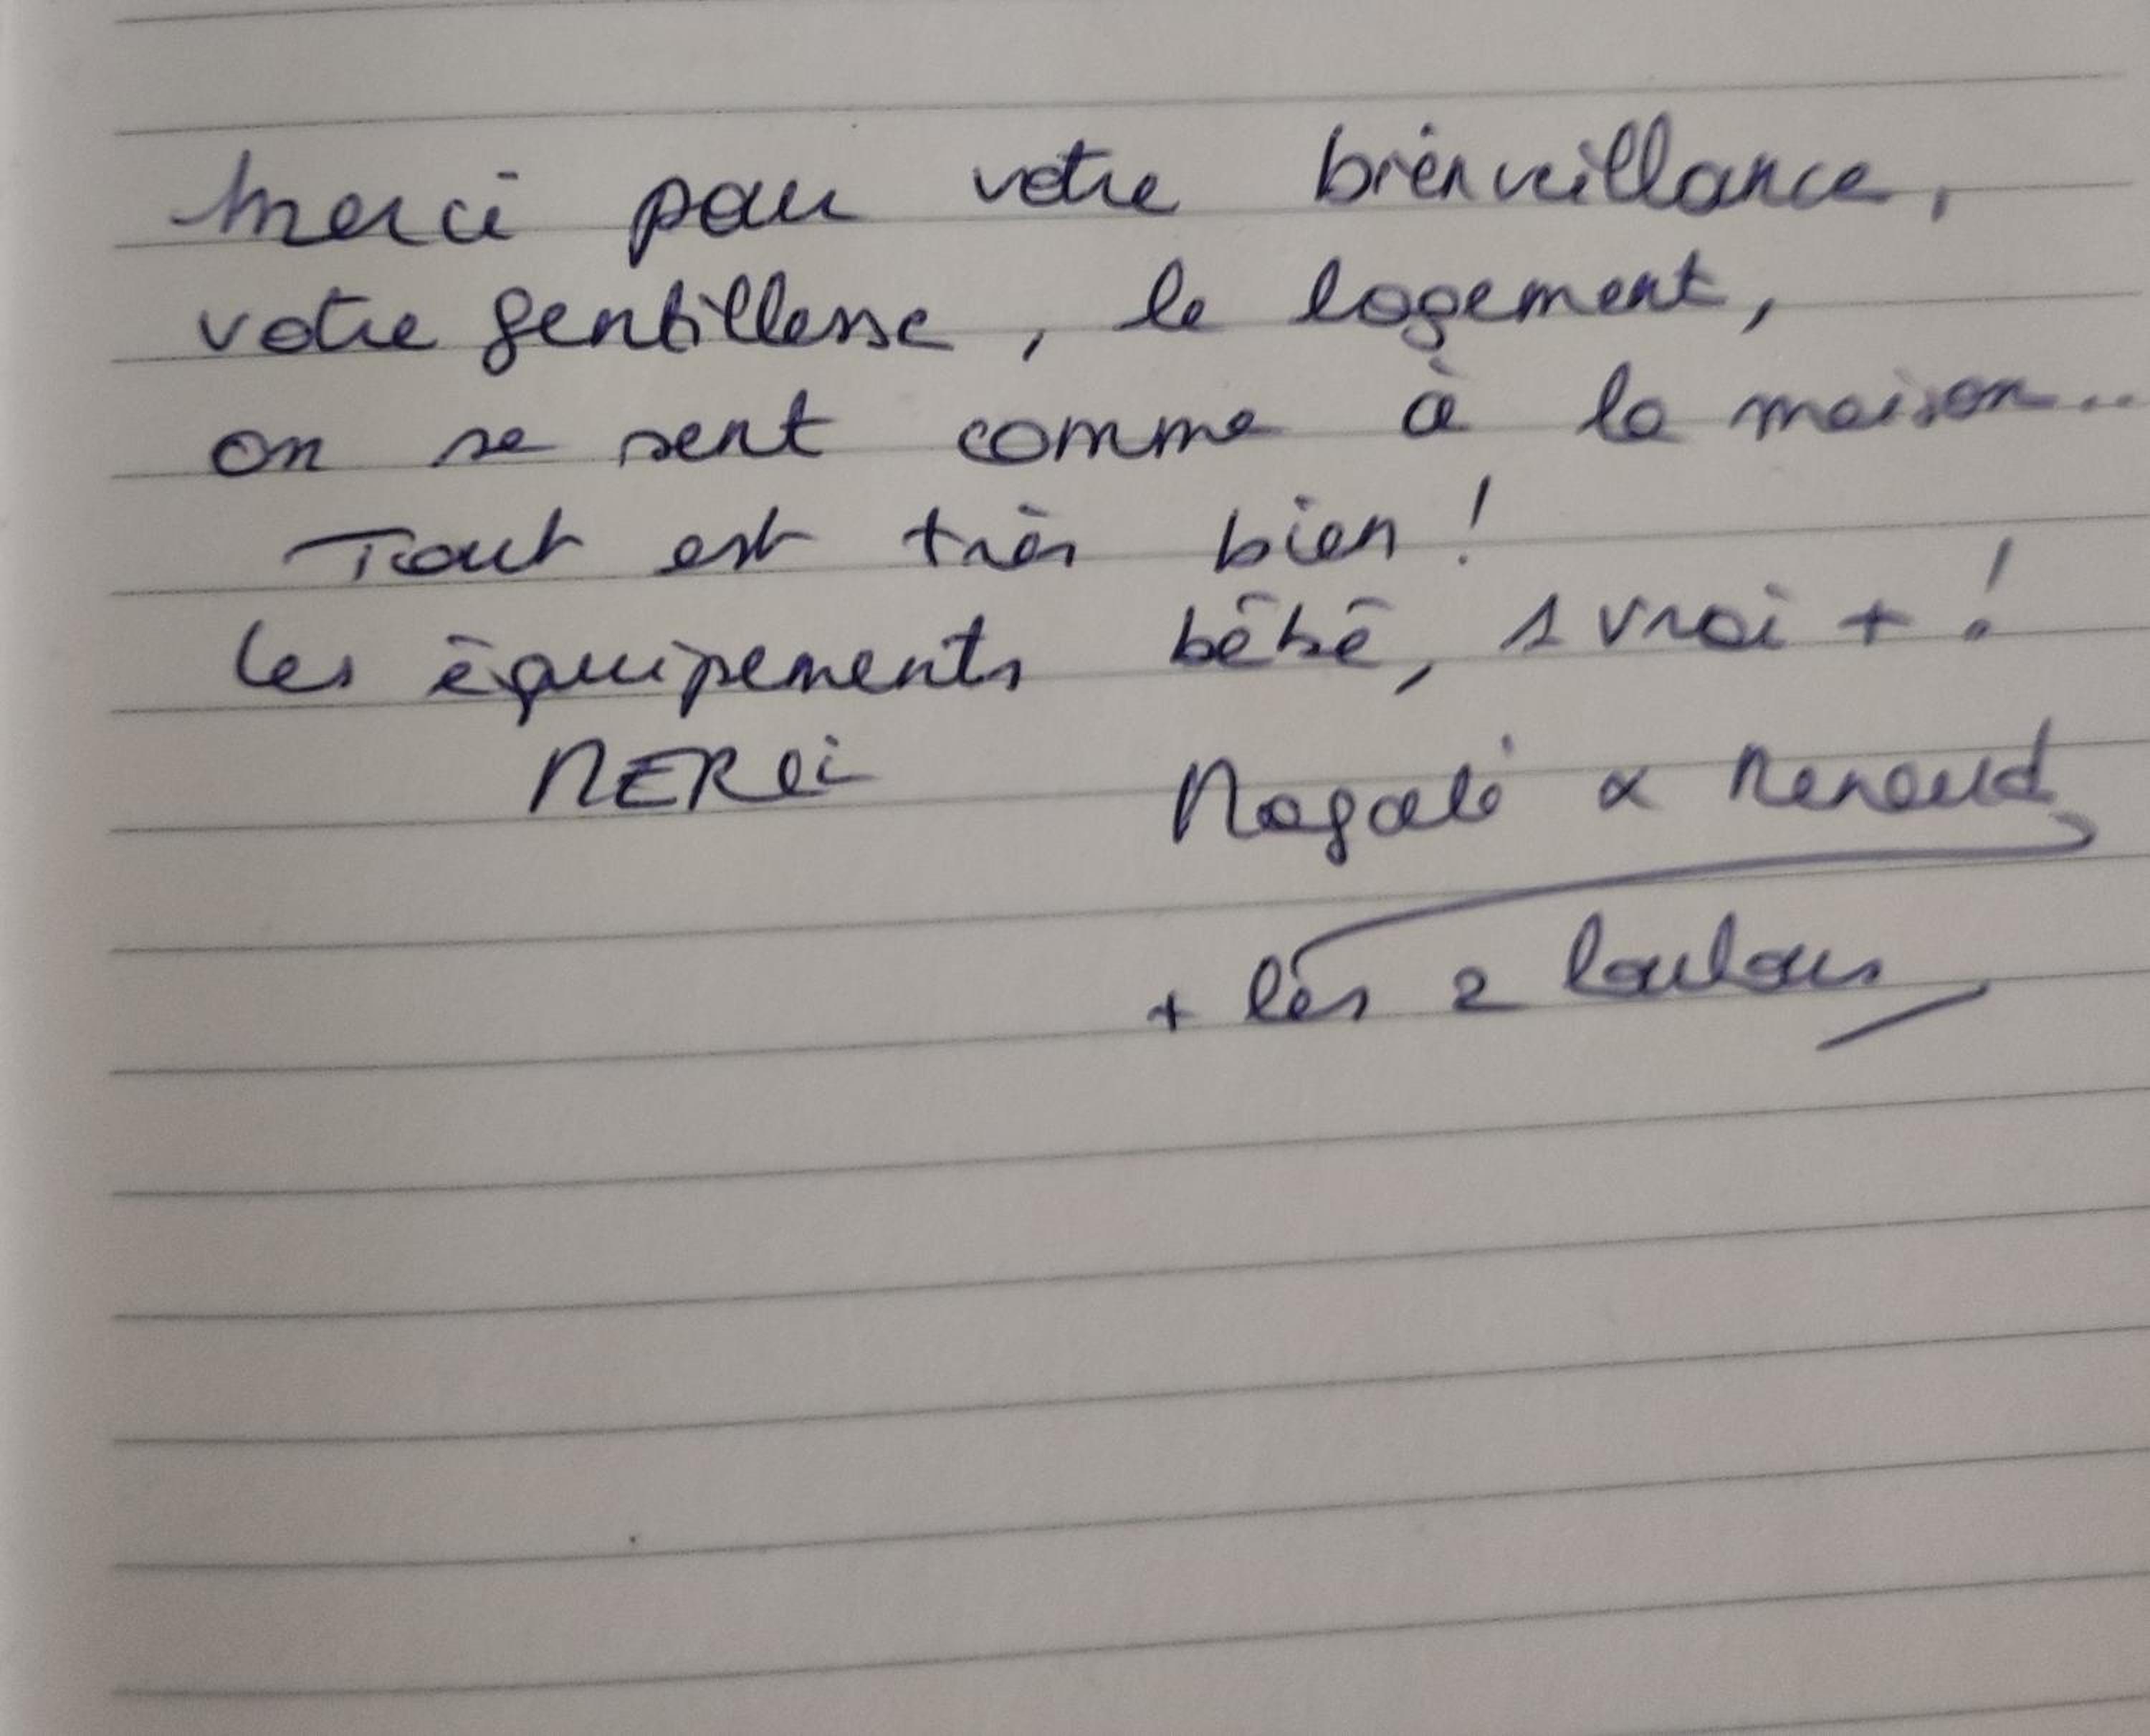 Merci pour votre bienveillance,
votre gentillesse, le logement,
on se sent comme à la maison...
Tout est très bien !
Les équipements bébé, 1 vrai + !
MERCi Magali & Renaud
+ les 2 loulous